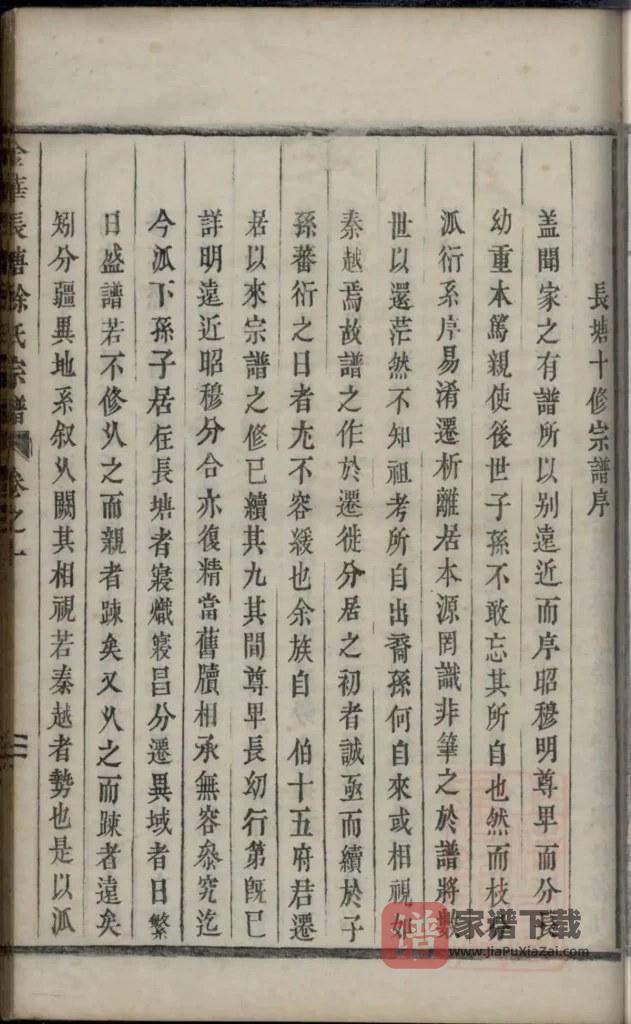 長塘十修宗譜序
盖聞家之有譜所以别遠近而序昭穆明尊卑而分長
幼重本篤親使後世子孫不敢忘其所自也然而枝
派衍系序易淆遷析離居本源罔識非筆之於譜將數
世以還茫然不知祖考所自出裔孫何自來或相視如
秦越焉故譜之作於遷徙分居之初者誠亟而續於子
孫蕃衍之日者尢不容緩也余族自 伯十五府君遷
居以來宗譜之修已續其九其間尊卑長幼行第旣已
詳明遠近昭穆分合亦復精當舊牘相承無容叅究迄
今派下孫子居在長塘者寖熾寖昌分遷異域者日繁
日盛譜若不修乆之而親者踈矣又乆之而踈者遠矣
矧分疆異地系叙乆闕其相視若秦越者勢也是以派
金華長塘徐氏宗譜 卷之十
譜 家谱下载
www.jiaPuXiaZai.com